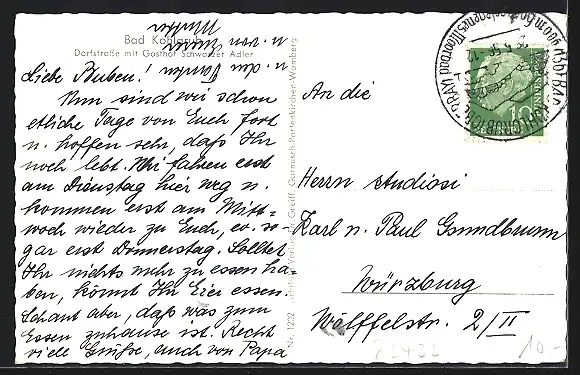 Bad Kohlgrub
Dorfstraße mit Gasthof Schwarzer Adler
Liebe Buben!
Nun sind wir schon
etliche Tage von Euch fort
u. hoffen sehr, daß Ihr
noch lebt. Wir fahren erst
am Dienstag hier weg u.
kommen erst am Mitt-
woch wieder zu Euch, ev. so-
gar erst Donnerstag. Solltet
Ihr nichts mehr zu essen ha-
ben, könnt Ihr Eier essen.
Schaut aber, daß was zum
Essen zuhause ist. Recht
viele Grüße, auch von Papa
u. von Eurer
Mutter
An die
Herrn Studiosi
Karl u. Paul Gsundbrunn
Würzburg
Wölffelstr. 2/II
Nr. 1232
Greiff, Garmisch-Partenkirchen-Wamberg
10
10.-